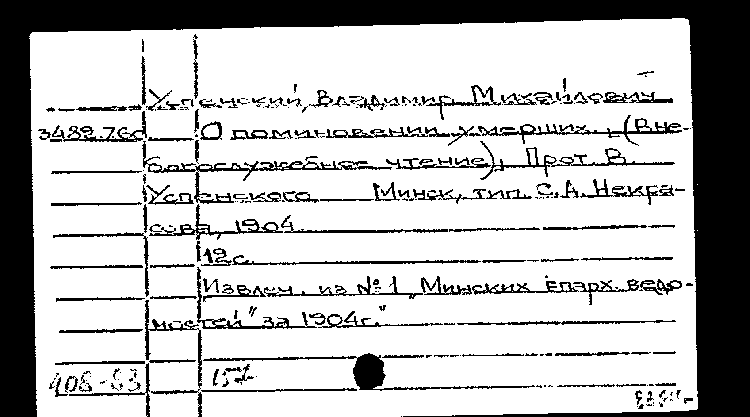 Успенский, Владимир Михайлович
О поминовении умерших. (Вне-
богослужебное чтение), Прот. В.
Успенского Минск, тип. С.А. Некра-
сова, 1904.
12с.
Извлеч. из №1 „Минских епарх. ведо-
мостей" за 1904г."
408-83